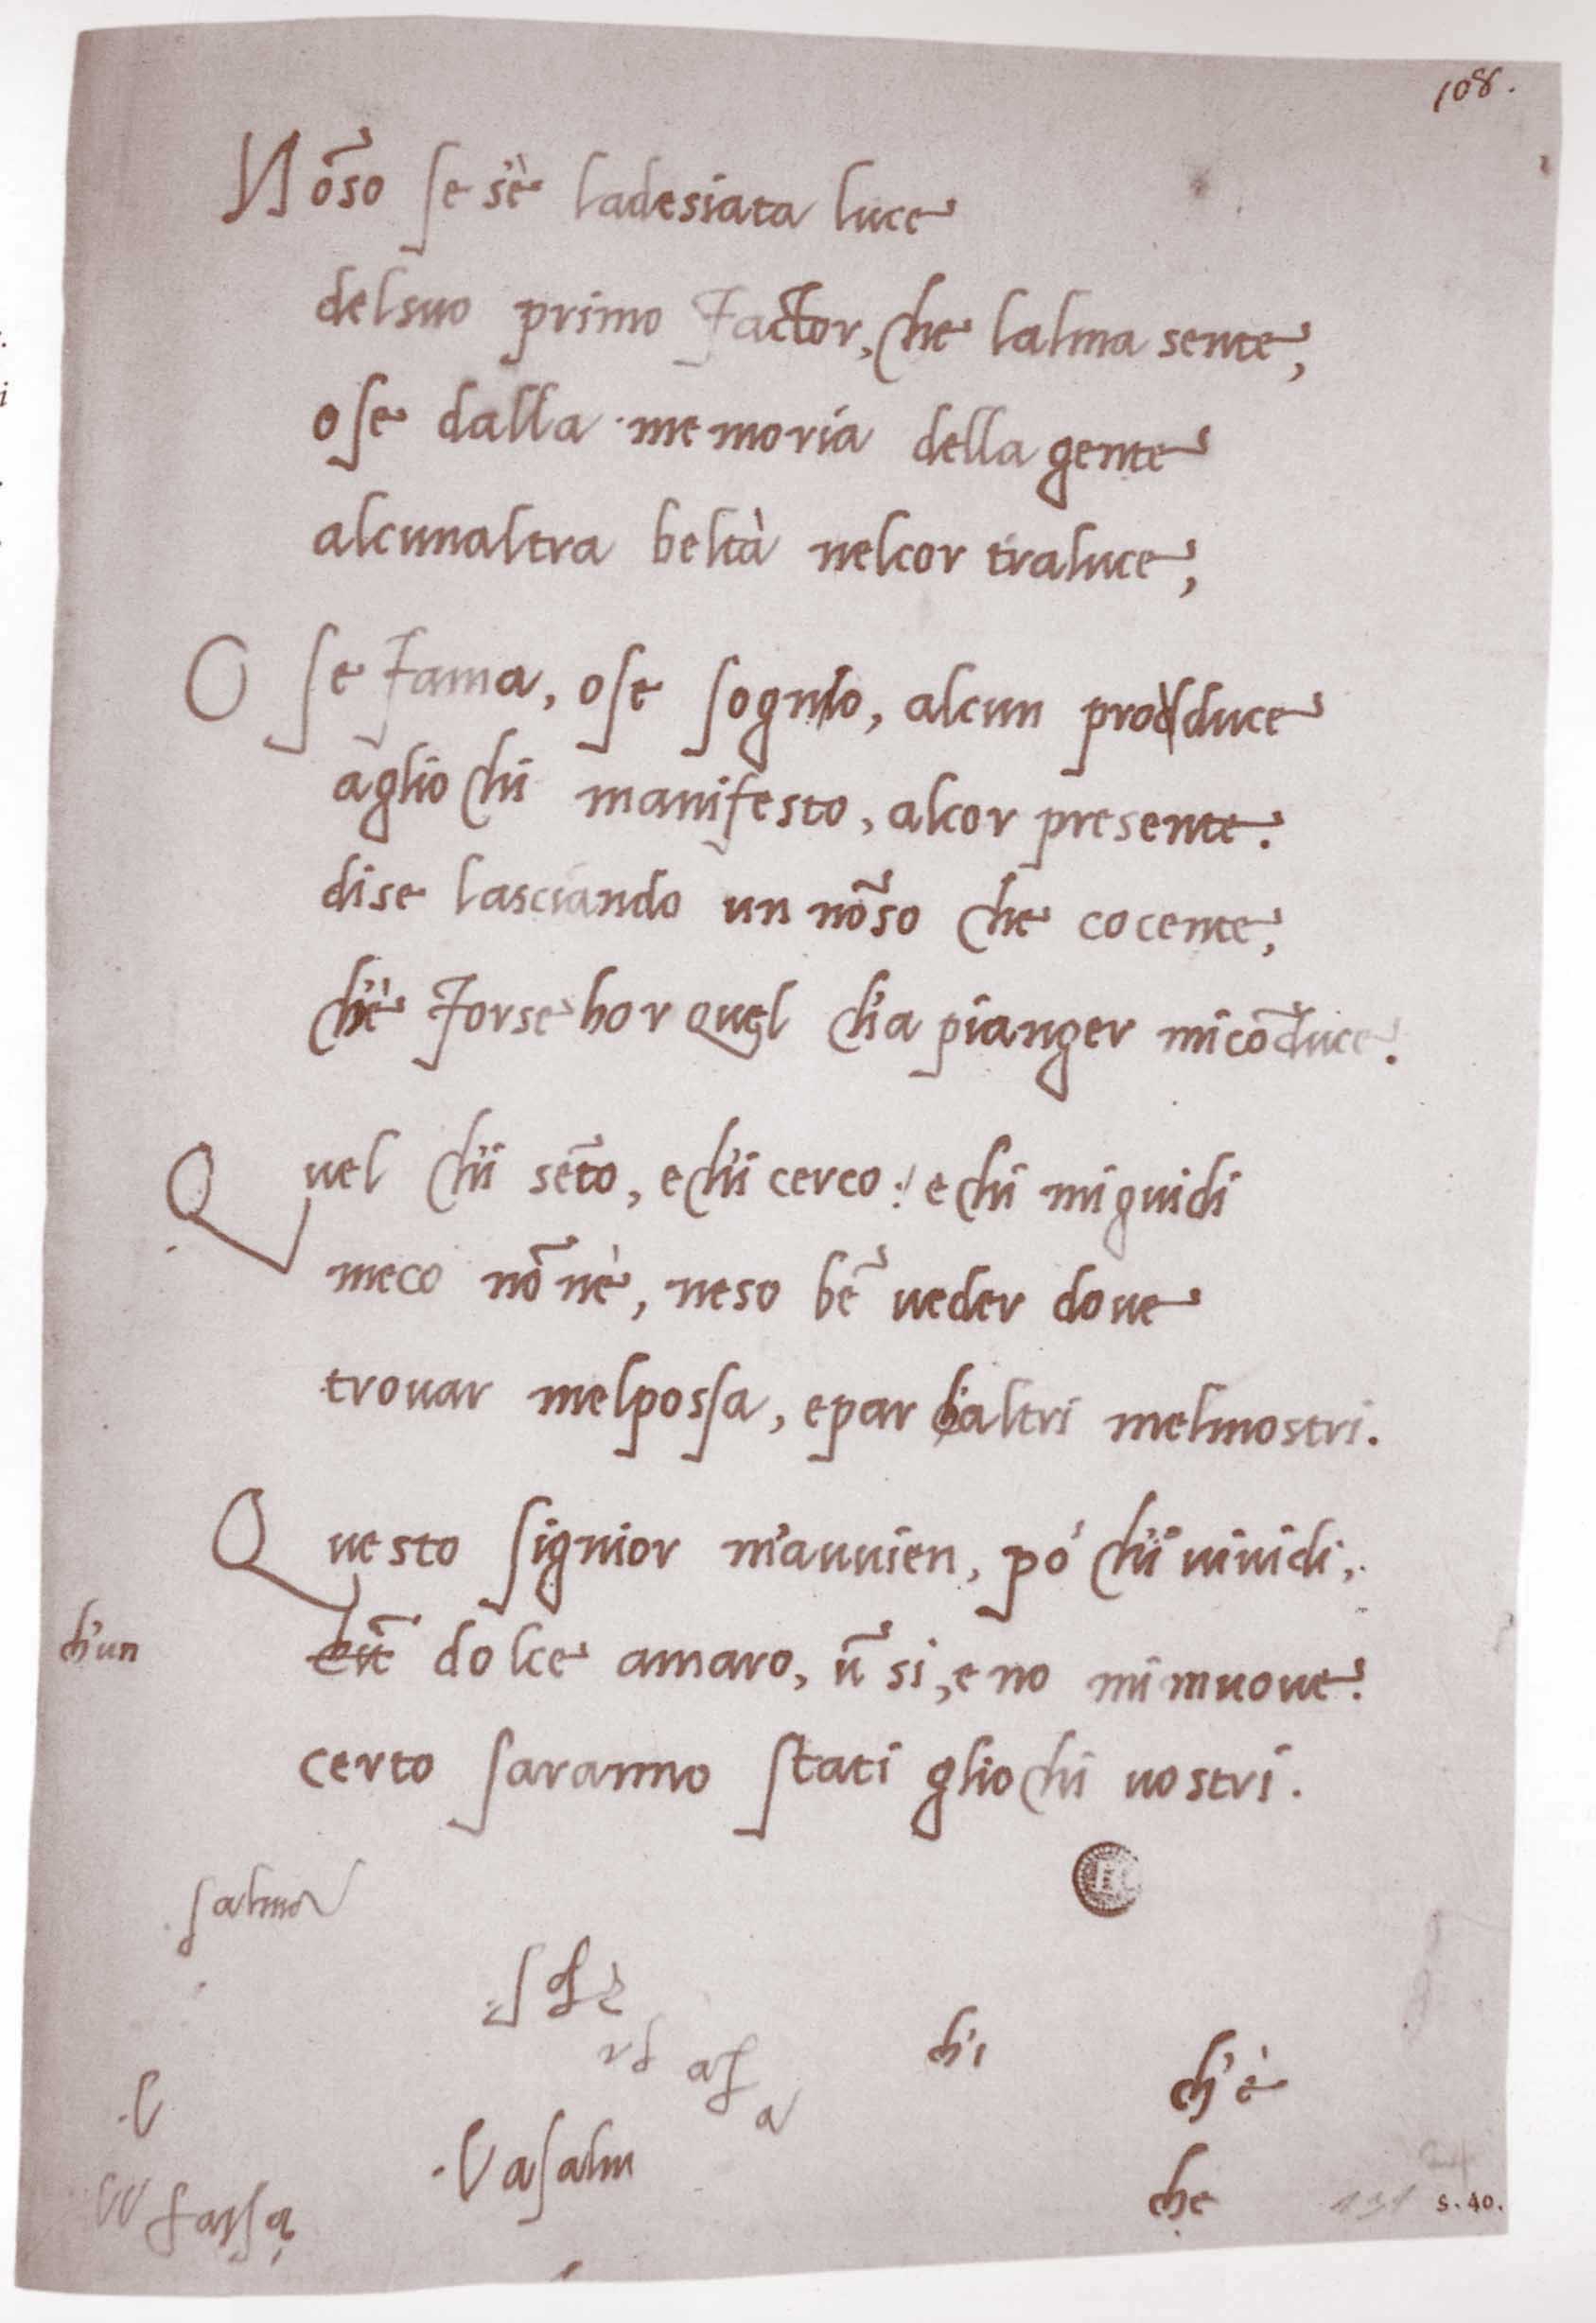 108.
Nõso se s'è ladesiata luce
delsuo primo factor, che lalma sente,
ose dalla memoria della gente
alcunaltra beltà nelcor traluce,
O se fama, ose sognio, alcun prodduce
agliochi manifesto, alcor presente.
dise lasciando un nõso che cocente,
ch'è forse hor quel ch'a pianger micõduce.
Quel ch'i sẽto, e ch'i cerco: e chi miguidi
meco nõ nè, neso bẽ ueder doue
trouar melpossa, epar ch'altri melmostri.
Questo signior m'auuien, po' ch'i uiuidi,
ch'un dolce amaro, ũ si, e no mimuoue.
certo saranno stati gliochi uostri.
salmo
ch'i
ch'è
Vasalm
che
S.40.